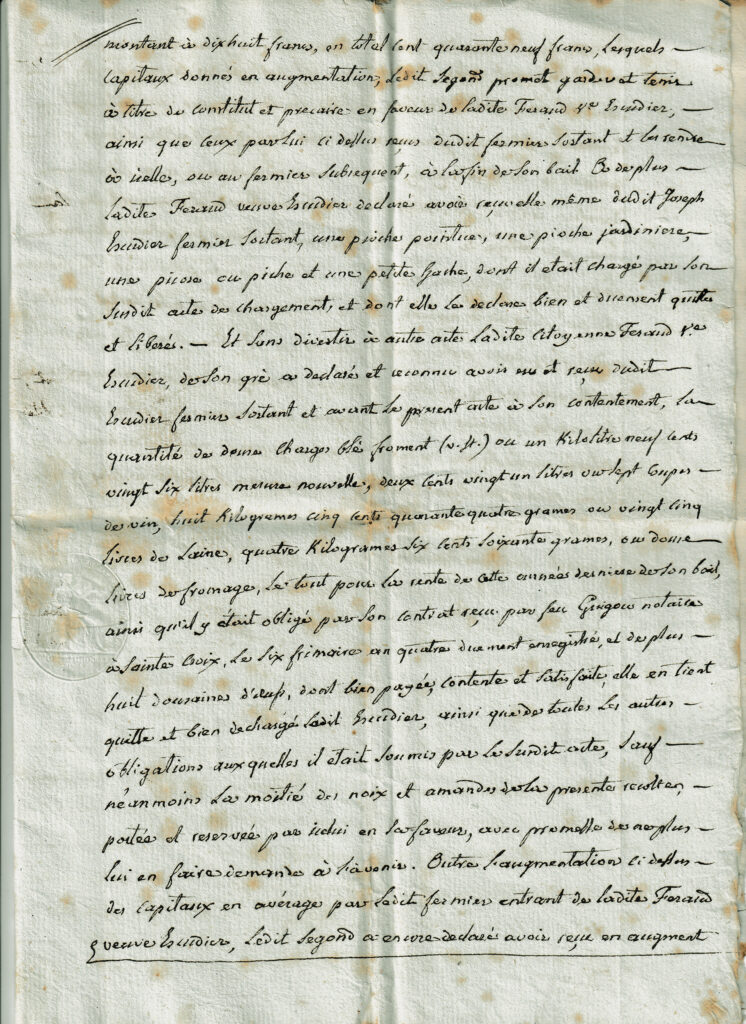 montant à dixhuit francs, en total cent quarante neuf francs, Lesquels —
Capitaux donnés en augmentation, Ledit Segond promet garder et tenir
à titre de constitut et precaire en faveur de ladite Feraud Ve Escudier, —
ainsi que ceux par lui ci dessus reçus dudit fermier sortant et les rendre
à icelle, ou au fermier subsequent, à la fin de son bail & de plus —
Ladite Feraud veuve Escudier declare avoir reçu elle même dudit Joseph
Escudier fermier sortant, une pioche pointue, une pioche jardiniere,
une picose ou piche et une petite hache, dont il était chargé par son
susdit acte de chargement, et dont elle le declare bien et duement quitte
et liberé. — Et sans divertir à autre acte Ladite Citoyenne Feraud Ve
Escudier, de son gré a declaré et reconnu avoir eu et reçu dudit —
Escudier fermier sortant et avant le present acte à son contentement, la —
quantité de douse charges blé froment (v. st.) ou un Kilolitre neuf cents
vingt six litres mesure nouvelle, deux cents vingt un litres ou sept coupes —
de vin, huit Kilogrames cinq cents quarante quatre grames ou vingt cinq
livres de Laine, quatre Kilogrames six cents soixante grames, ou douse
livres de fromage, Le tout pour la rente de cette année derniere de son bail,
ainsi qu'il y était obligé par son contrat reçu par feu Guigou notaire
à Sainte Croix, Le six frimaire an quatre duement enregistré, et de plus —
huit dousaine d'œufs, dont bien payée, contente et satisfaite elle en tient
quitte et bien dechargé Ledit Escudier, ainsi que de toutes les autres —
obligations aux quelles il était soumis par le susdit acte, sauf —
néanmoins La moitié des noix et amandes de la presente recolte, —
portée et reservée par icelui en sa faveur, avec promesse de ne plus —
lui en faire demande à l'avenir. Outre l'augmentation ci dessus —
des Capitaux en avérage par Ledit fermier entrant de ladite Feraud
veuve Escudier, Ledit Segond a encore declaré avoir reçu en augment